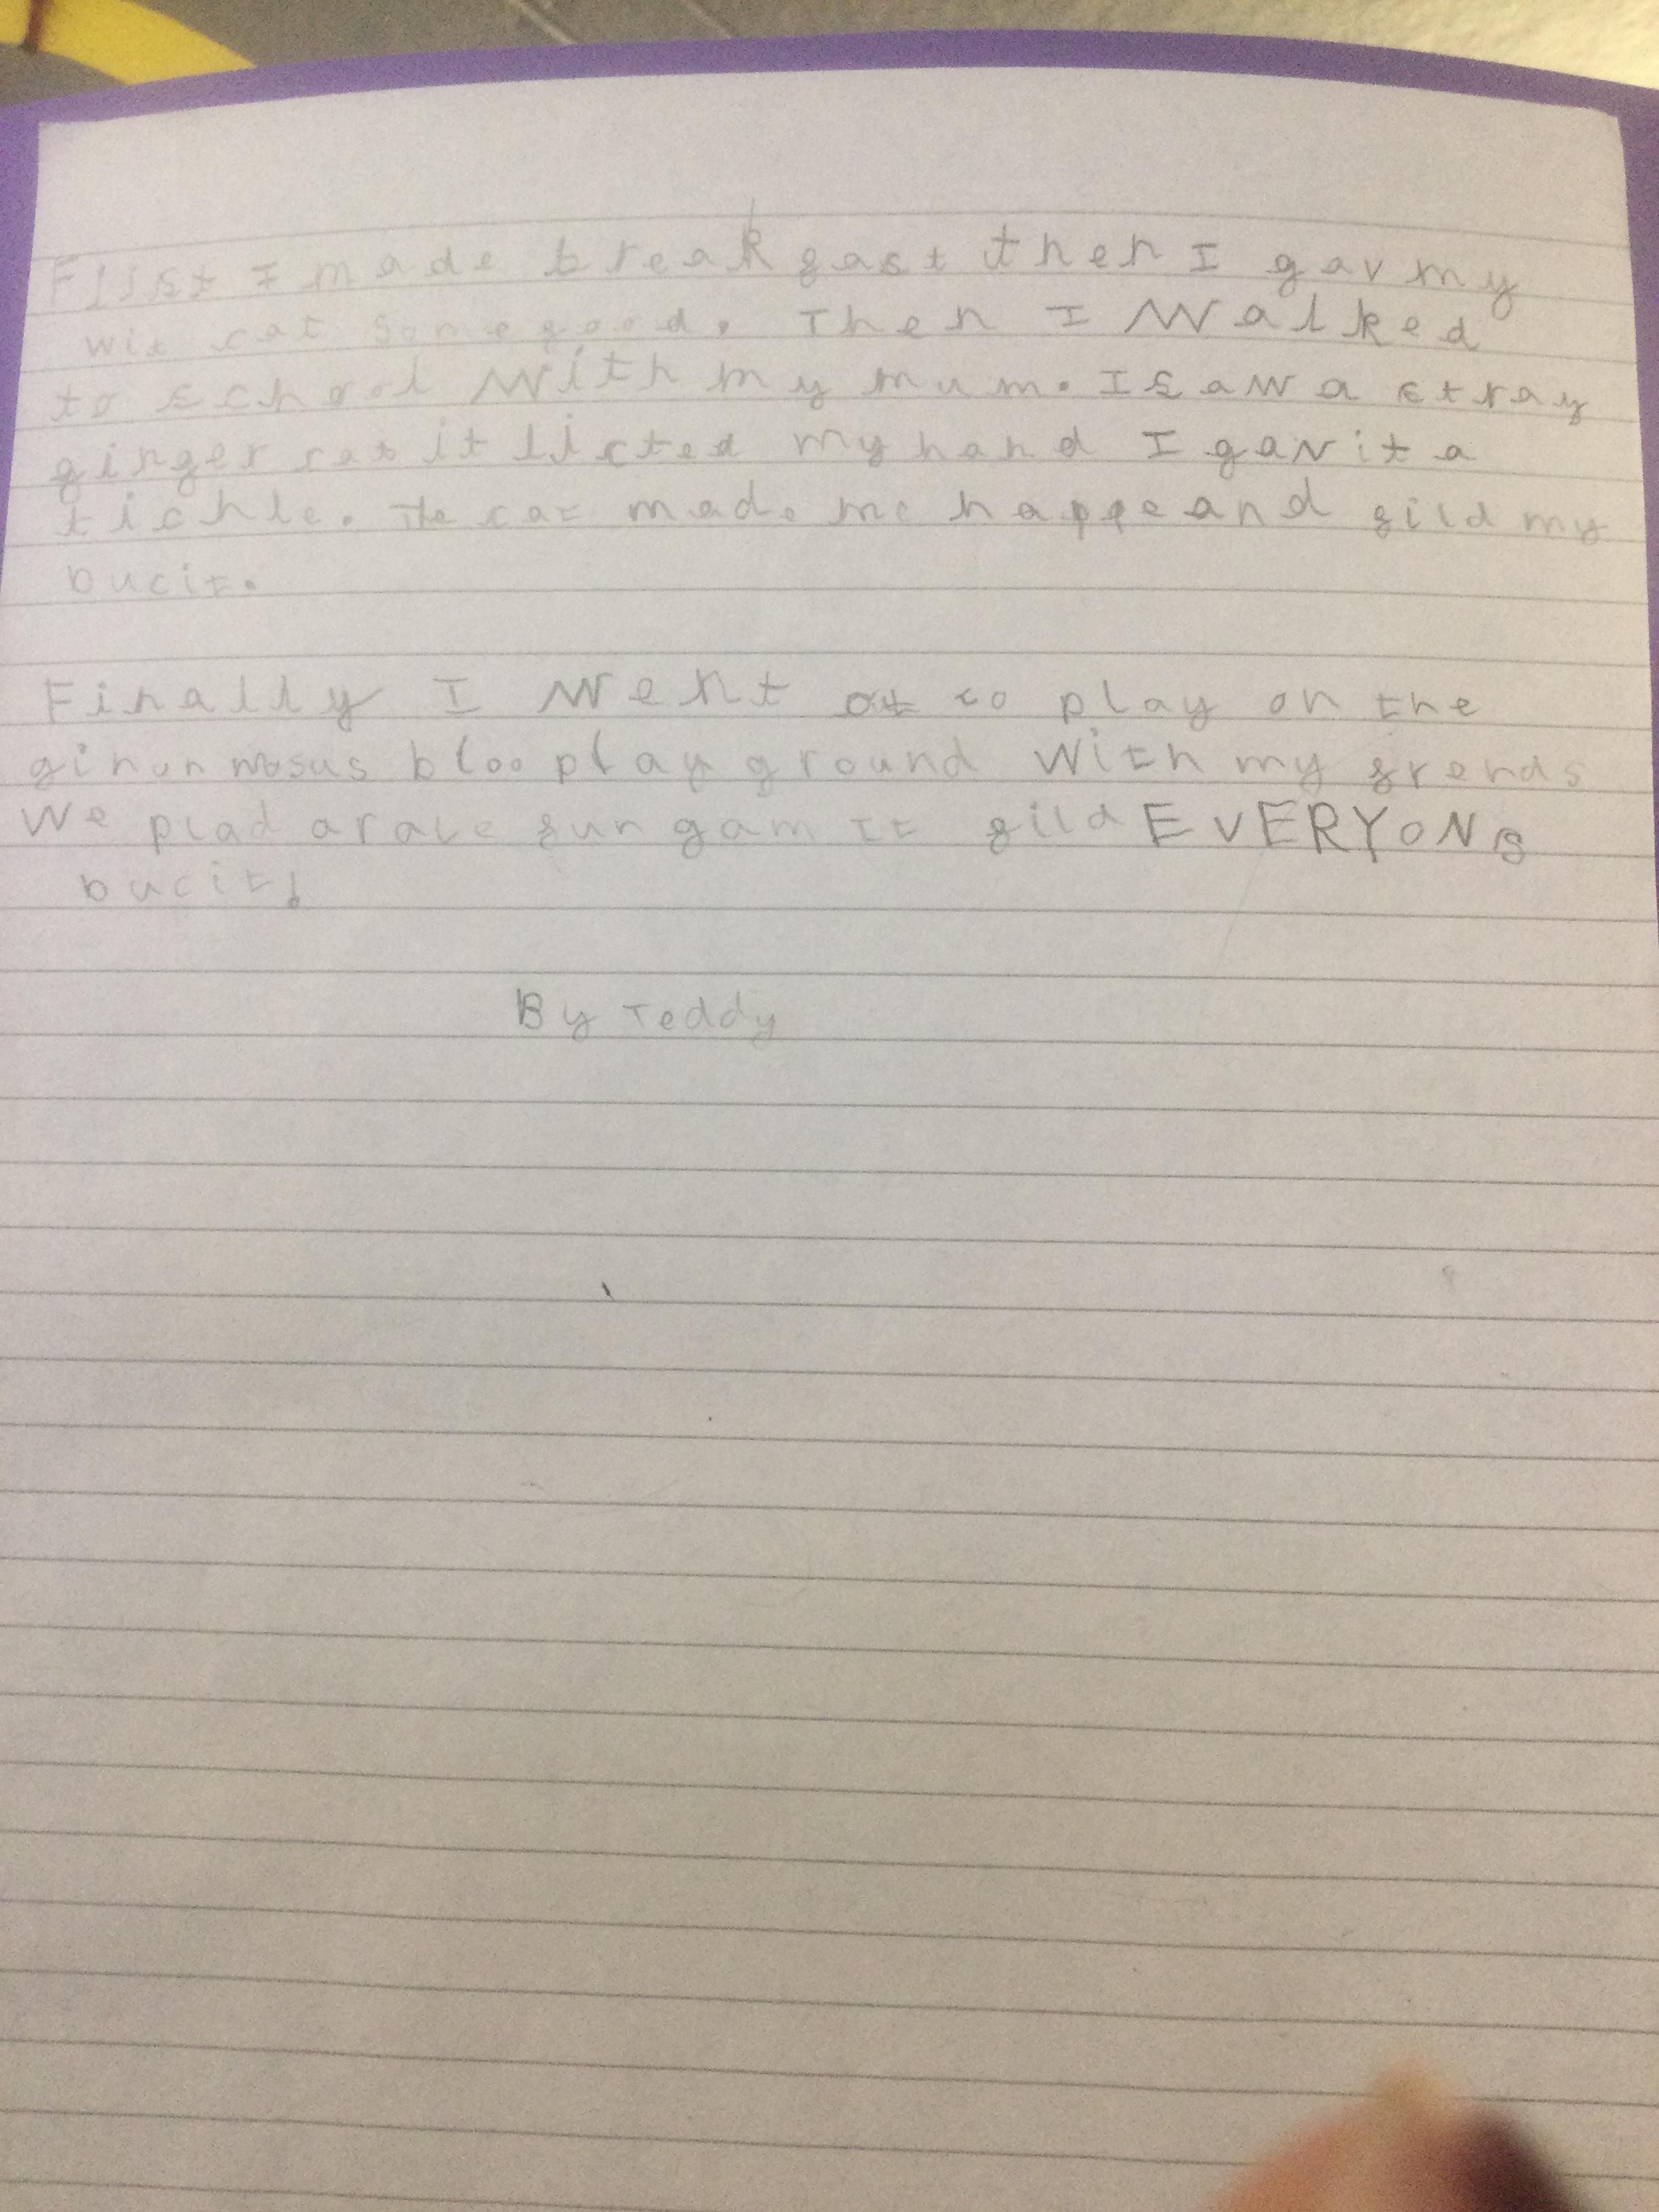 First I made breakfast then I gav my
wit cat some food. Then I walked
to school with my mum. I saw a stray
ginger cat it licted my hand I gav it a
tichle. The cat made me happe and fild my
bucit.
Finally I went out to play on the
ginunmosus bloo play ground with my frends
We plad a rale fun gam It fild EVERYONS
bucit!
By Teddy